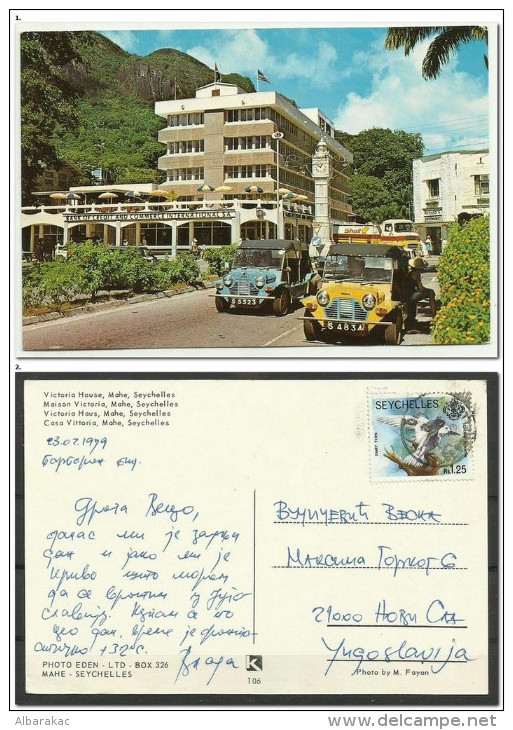 1.
BANK OF CREDIT AND COMMERCE INTERNATIONAL S.A.
Shell
S 5523
S 4834
2.
Victoria House, Mahe, Seychelles
Maison Victoria, Mahe, Seychelles
Victoria Haus, Mahe, Seychelles
Casa Vittoria, Mahe, Seychelles
23.02.1979
SEYCHELLES
FAIRY TERN
Rs1.25
Драга Весо,
данас ми је задњи
дан и јако ми је
криво што морам
да се вратим из Југо
славију. Купам се по
цео дан, време је фанта
стично +32°C.
Влада
Вујичевић Весна
Максима Горког 6
21000 Нови Сад
Yugoslavija
PHOTO EDEN - LTD - BOX 326
MAHE - SEYCHELLES
K
106
Photo by M. Fayan
Albarakac
http://www.delcampe.net